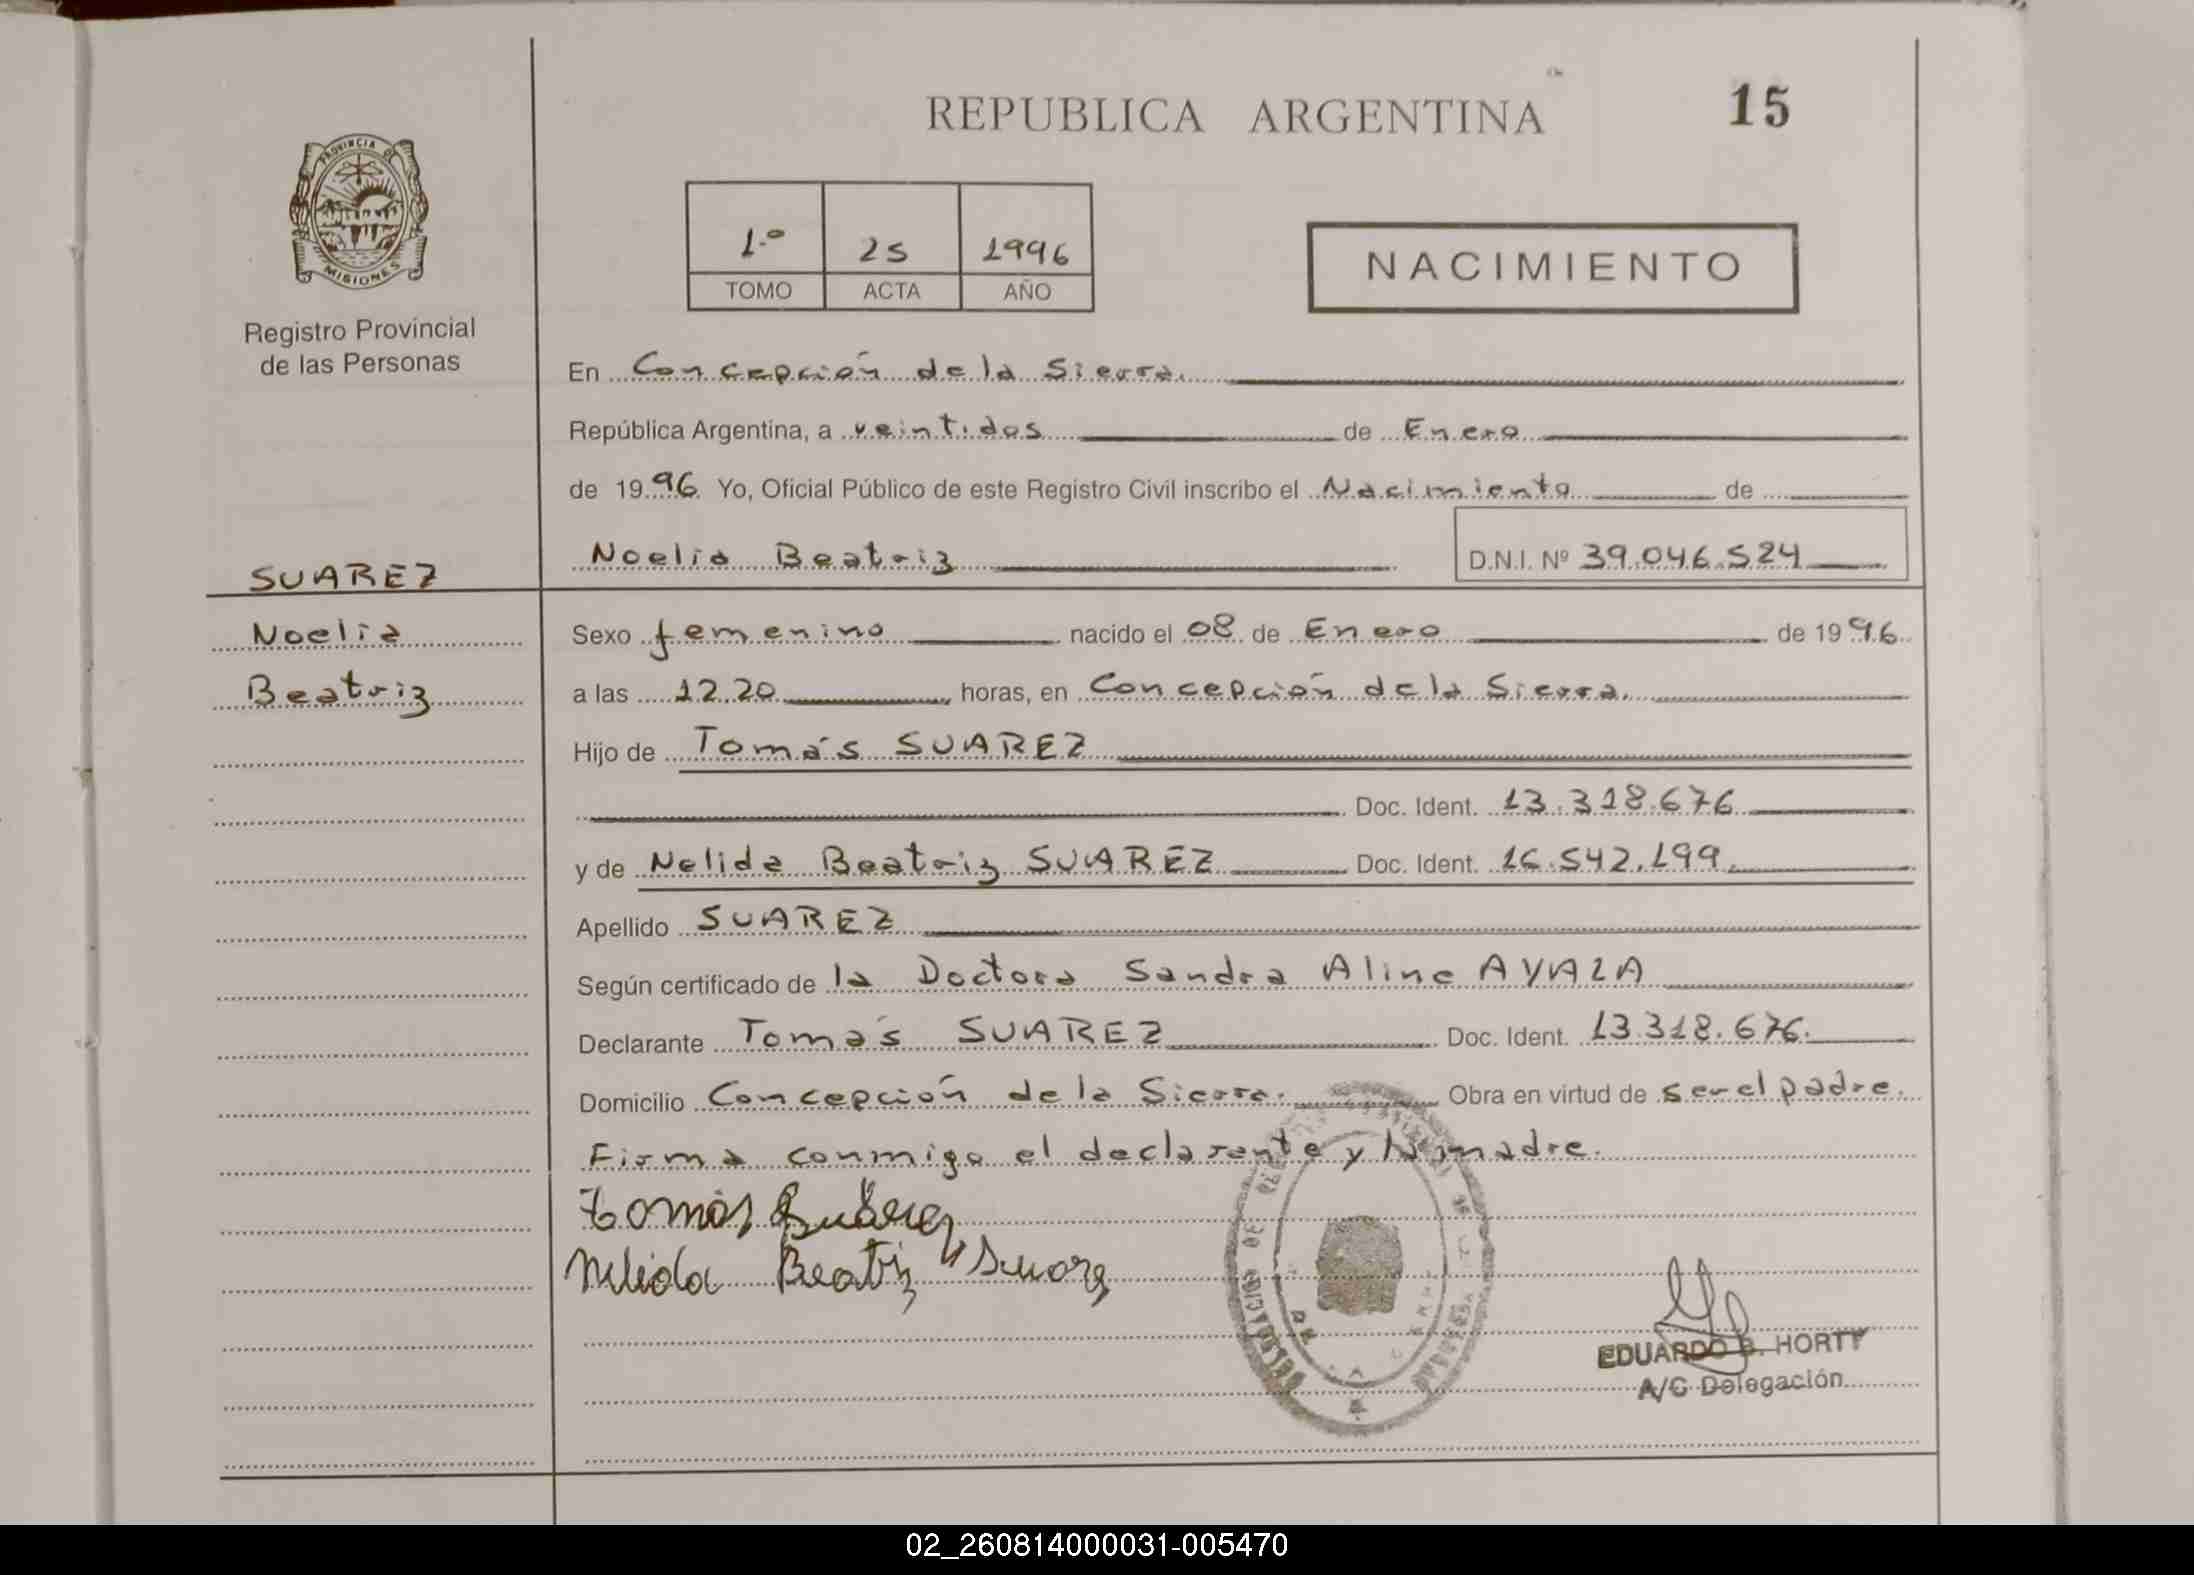 REPUBLICA ARGENTINA
15
PROVINCIA DE
MISIONES
Registro Provincial
de las Personas
1.º 25 1996
TOMO ACTA AÑO
NACIMIENTO
En Concepción de la Sierra.
República Argentina, a veintidos de Enero
de 1996 Yo, Oficial Público de este Registro Civil inscribo el Nacimiento de
Noelia Beatriz D.N.I. Nº 39.046.524
SUAREZ
Noelia
Beatriz
Sexo femenino nacido el 08 de Enero de 1996
a las 12.20 horas, en Concepción de la Sierra.
Hijo de Tomás SUAREZ
Doc. Ident. 13.318.676
y de Nelida Beatriz SUAREZ Doc. Ident. 16.542.199.
Apellido SUAREZ
Según certificado de la Doctora Sandra Aline AYALA
Declarante Tomás SUAREZ Doc. Ident. 13.318.676.
Domicilio Concepción de la Sierra. Obra en virtud de ser el padre.
Firma conmigo el declarante y la madre.
Tomás Suárez
Nelida Beatriz Suarez
EDUARDO B. HORTY
A/C Delegación
02_260814000031-005470